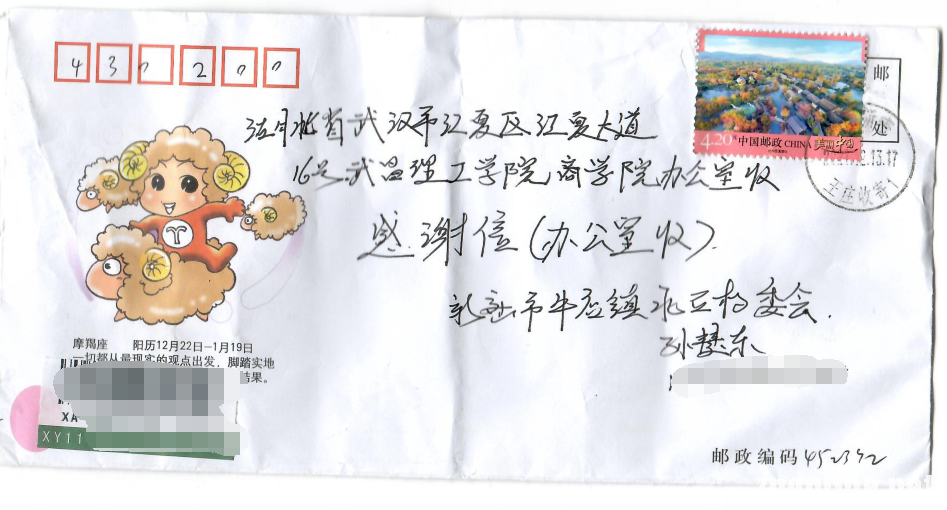 430200
邮
处
湖北省武汉市江夏区江夏大道
16号武昌理工学院商学院办公室收
感谢信(办公室收).
4.20 中国邮政 CHINA 美丽中国
13.17
王庄收寄1
市牛屯镇 村委会.
孙慧东
摩羯座 阳历12月22日-1月19日
一切都从最现实的观点出发,脚踏实地
结果。
XA
XY11
邮政编码 452392